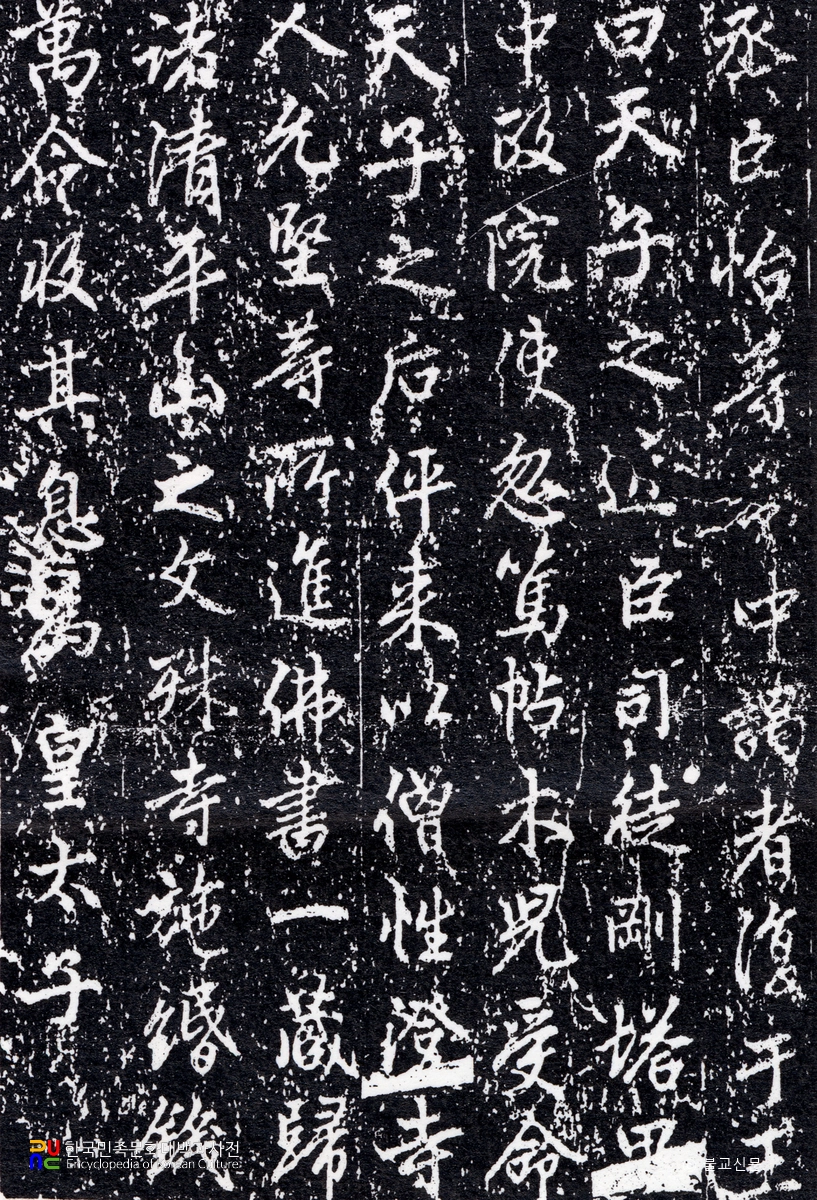 丞臣怡等
中謁者復于王
曰天子之近臣司徒剛塔里
中政院使忽篤帖木兒受命
天子之后伻来以僧性澄寺
人允堅等所進佛書一藏歸
諸清平山之文殊寺施緡錢
萬令收其息萬皇太子
한국민족문화대백과사전
Encyclopedia of Korean Culture
불교신문